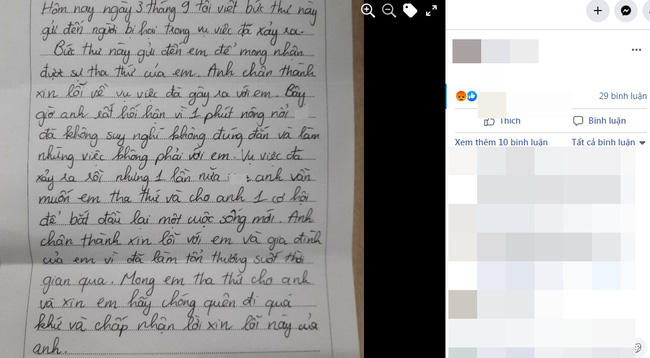 Hôm nay ngày 3 tháng 9 tôi viết bức thư này
gửi đến người bị hại trong vụ việc đã xảy ra.
Bức thư này gửi đến em để mong nhận
được sự tha thứ của em. Anh chân thành
xin lỗi về vụ việc đã gây ra với em. Bây
giờ anh rất hối hận vì 1 phút nóng nổi
đã không suy nghĩ không đúng đắn và làm
những việc không phải với em. Vụ việc đã
xảy ra rồi nhưng 1 lần nữa anh vẫn
muốn em tha thứ và cho anh 1 cơ hội
để bắt đầu lại một cuộc sống mới. Anh
chân thành xin lỗi với em và gia đình
của em vì đã làm tổn thương suốt thời
gian qua. Mong em tha thứ cho anh
và xin em hãy chóng quên đi quá
khứ và chấp nhận lời xin lỗi này của
anh.
29 bình luận
Thích
Bình luận
Xem thêm 10 bình luận
Tất cả bình luận